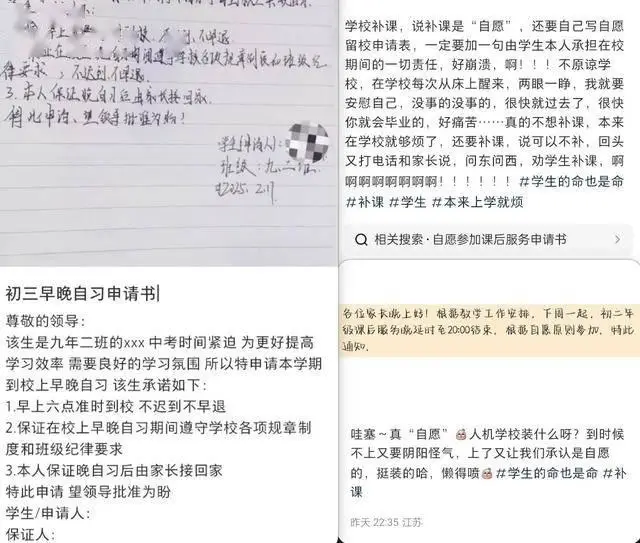 律要求，不迟到不早退。
3.本人保证晚自习后由家长接回家。
特此申请，望领导批准为盼！
学生/申请人：
班级：九.二班.
2025. 2.17
初三早晚自习申请书
尊敬的领导：
该生是九年二班的xxx 中考时间紧迫 为更好提高
学习效率 需要良好的学习氛围 所以特申请本学期
到校上早晚自习 该生承诺如下：
1.早上六点准时到校 不迟到不早退
2.保证在校上早晚自习期间遵守学校各项规章制
度和班级纪律要求
3.本人保证晚自习后由家长接回家
特此申请 望领导批准为盼
学生/申请人：
保证人：
学校补课，说补课是“自愿”，还要自己写自愿
留校申请表，一定要加一句由学生本人承担在校
期间的一切责任，好崩溃，啊！！！不原谅学
校，在学校每次从床上醒来，两眼一睁，我就要
安慰自己，没事的没事的，很快就过去了，很快
你就会毕业的，好痛苦……真的不想补课，本来
在学校就够烦了，还要补课，说可以不补，回头
又打电话和家长说，问东问西，劝学生补课，啊
啊啊啊啊啊啊啊！！！！！！#学生的命也是命
#补课 #学生 #本来上学就烦
相关搜索·自愿参加课后服务申请书
各位家长晚上好！根据教学工作安排，下周一起，初二年
级课后服务晚延时至20:00结束，根据自愿原则参加，特此
通知。
哇塞～真“自愿”人机学校装什么呀？到时候
不上又要阴阳怪气，上了又让我们承认是自愿
的，挺装的哈，懒得喷#学生的命也是命 #补
课
昨天 22:35 江苏